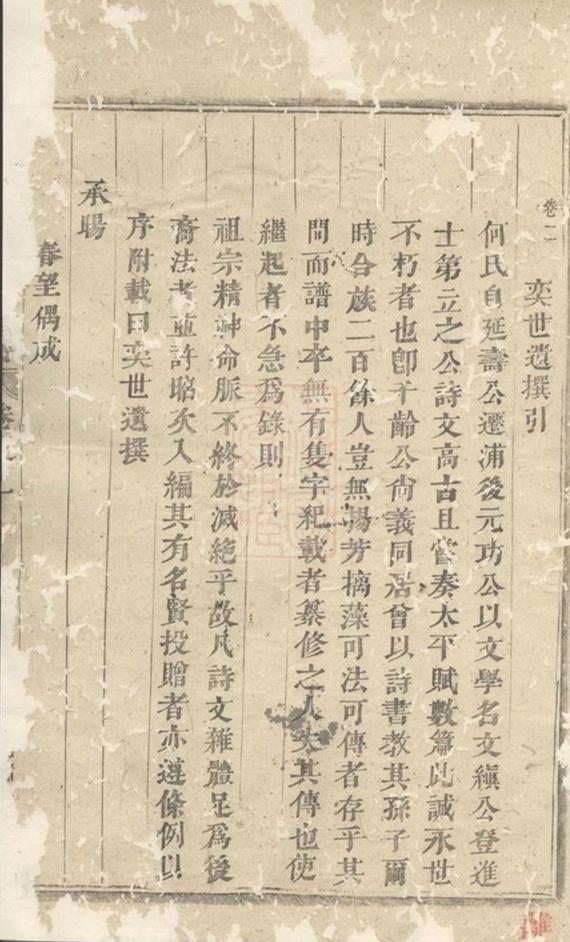 卷二
奕世遺撰引
何氏自延壽公遷浦後元功公以文學名文縝公登進
士第立之公詩文高古且嘗奏太平賦數篇此誠永世
不朽者也卽千齡公尙義同居曾以詩書教其孫子爾
時合族二百餘人豈無揚芳摛藻可法可傳者存乎其
間而譜中卒無有隻字紀載者纂修之人失其傳也使
繼起者不急爲錄則
祖宗精神命脈不終於滅絕乎故凡詩文雜體足爲後
裔法者並許昭次入編其有名賢投贈者亦遵條例以
序附載曰奕世遺撰
承暘
春望偶成